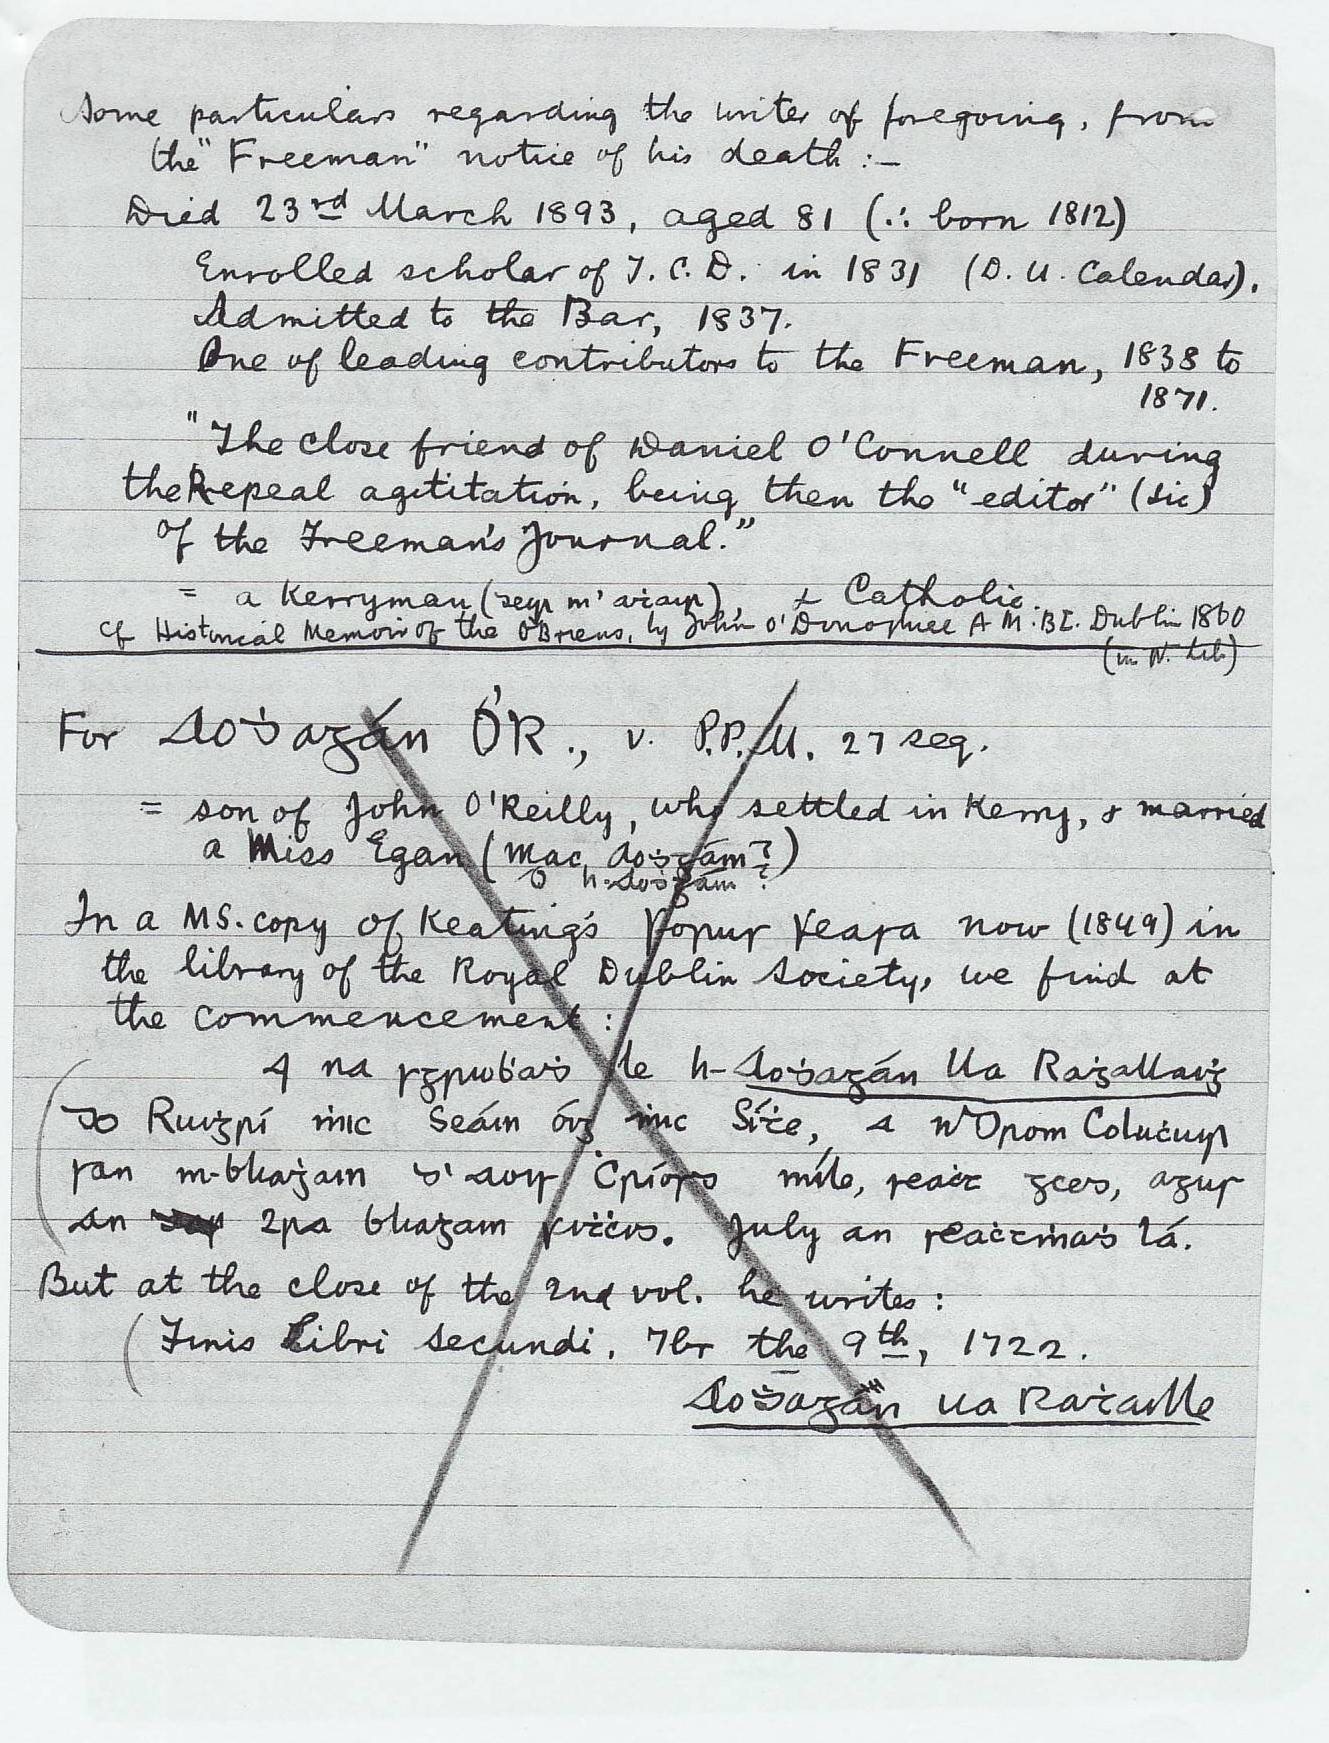 Some particulars regarding the writer of foregoing, from
the "Freeman" notice of his death :–
Died 23rd March 1893, aged 81 (∴ born 1812)
Enrolled scholar of T. C. D. in 1831 (D. U. Calendar).
Admitted to the Bar, 1837.
One of leading contributors to the Freeman, 1838 to
1871.
"The close friend of Daniel O'Connell during
the Repeal agititation, being then the "editor" (sic)
of the Freeman's Journal."
= a Kerryman (deir m' aṫair), + Catholic.
cf Historical Memoir of the O'Briens, by John O'Donoghue A.M. BL. Dublin 1860
(in N. Lib)
For Aoḋagán Ó'R., v. P.P.M. 27 seq.
= son of John O'Reilly, who settled in Kerry, & married
a Miss Egan (Mac Aoḋgáin?)
Ó h-Aoḋgáin?
In a MS. copy of Keating's Forur Feara now (1849) in
the library of the Royal Dublin Society, we find at
the commencement :
Ar na sgríoḃaḋ le h-Aoḋagán Ua Raġallaiġ
do Ruiġrí ṁic Seáin óig ṁic Síṫe, a nDrom Coluċuir
san m-bliaġain d'aois Ċríost míle, seaċt gced, agus
an 2ra bliaġain fiċċiod. July an seaċtṁaḋ lá.
But at the close of the 2nd vol. he writes :
(Finis Libri secundi. 7br the 9th, 1722.
Aoḋagán Ua Raṫaille